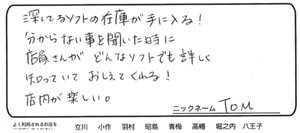 探してるソフトの在庫が手に入る!
分からない事を聞いた時に
店員さんが どんなソフトでも詳しく
知っていて おしえてくれる!
店内が楽しい。
ニックネーム TOM
よく利用されるお店を
立川 小作 羽村 昭島 青梅 高幡 堀之内 八王子